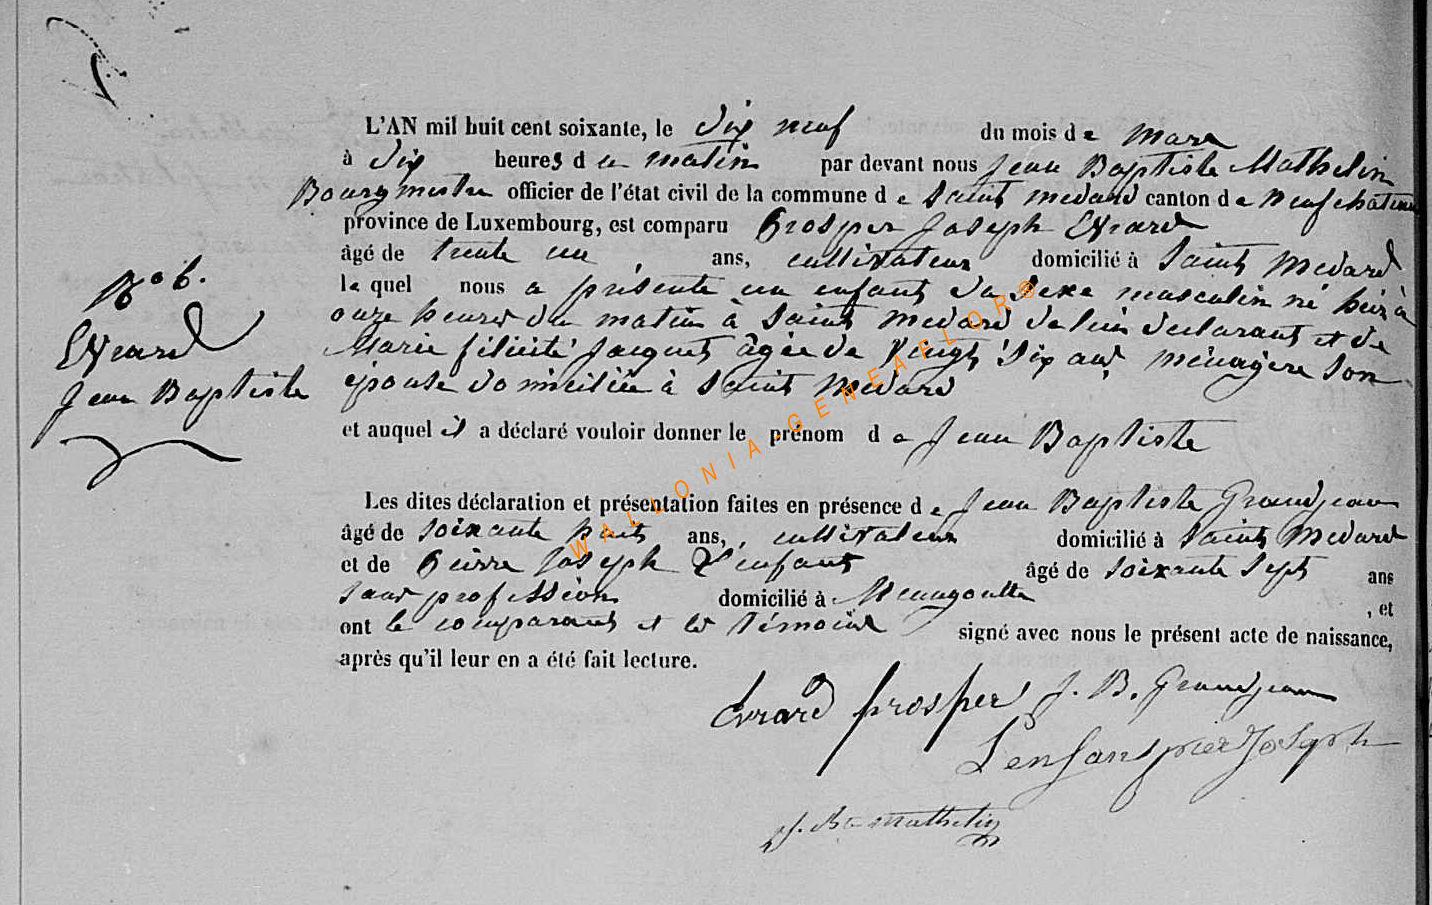 L'AN mil huit cent soixante, le dix neuf du mois de mars
à dix heures du matin par devant nous Jean Baptiste Mathelin
Bourgmestre officier de l'état civil de la commune de Saint Medard canton de Neufchateau
province de Luxembourg, est comparu Prosper Joseph Evrard
âgé de trente un ans, cultivateur domicilié à Saint Medard
lequel nous a présenté un enfant du sexe masculin né hier à
onze heures du matin à Saint Medard de lui declarant et de
Marie félicité Jacquet âgée de vingt six ans ménagère son
épouse domiciliée à Saint Medard
et auquel il a déclaré vouloir donner le prénom de Jean Baptiste
Les dites déclaration et présentation faites en présence de Jean Baptiste Grandjean
âgé de soixante huit ans, cultivateur domicilié à Saint Medard
et de Pierre Joseph L'enfant âgé de soixante sept ans
sans profession domicilié à Menugoutte , et
ont le comparant et les témoins signé avec nous le présent acte de naissance,
après qu'il leur en a été fait lecture.
N° 6.
Evrard
Jean Baptiste
Evrard prosper J. B. Grandjean
Lenfant pier Joseph
J. Bte Mathelin
WALLONIA-GENEAFLOR®